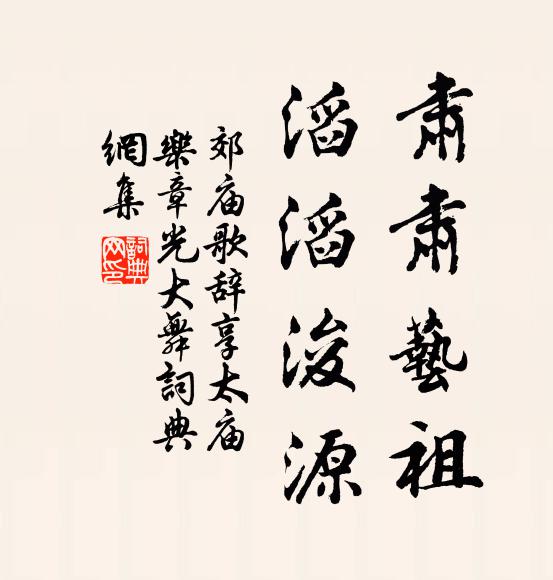 肅肅藝祖
滔滔浚源
郊庙歌辞享太庙
樂章光大舞詞典
網集
詞典
网印